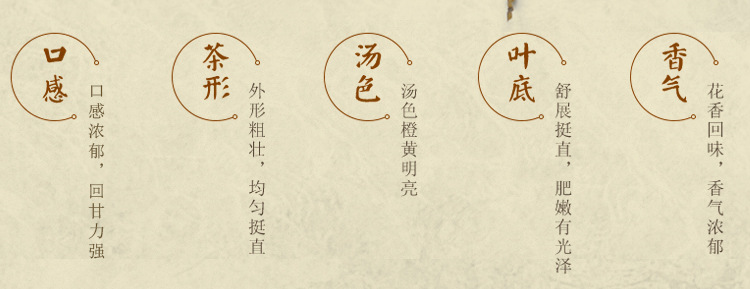 口感
口感浓郁，回甘力强
茶形
外形粗壮，均匀挺直
汤色
汤色橙黄明亮
叶底
舒展挺直，肥嫩有光泽
香气
花香回味，香气浓郁